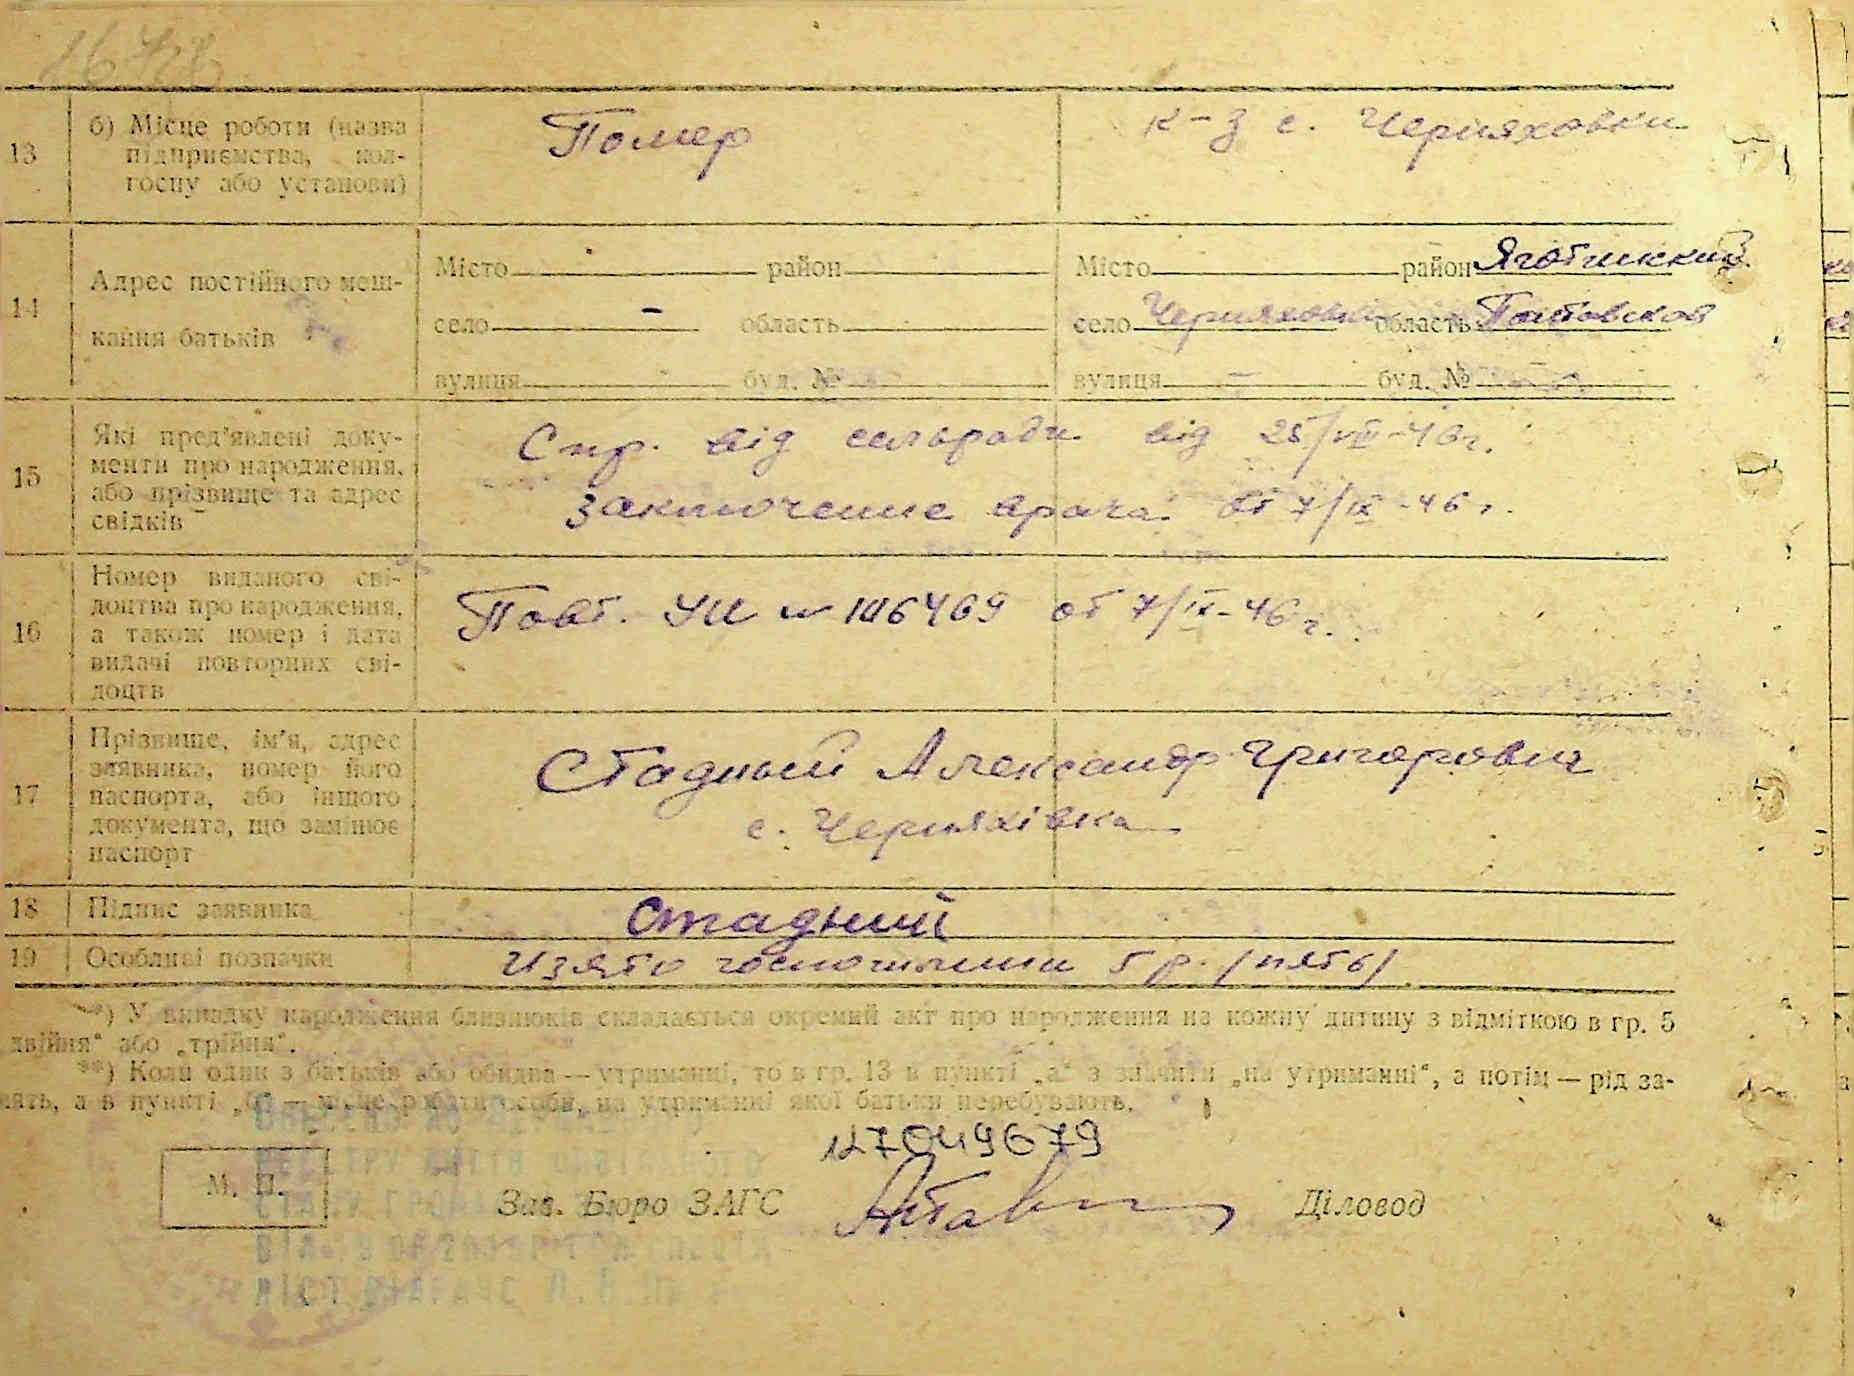 13
б) Місце роботи (назва
підприємства, кол-
госпу або установи)
Помер
к-з с. Черняховки
14
Адрес постійного меш-
кання батьків
Місто район
село - область
вулиця буд. №
Місто район Яготинский
село Черняховка область Полтавской
вулиця — буд. № —
15
Які пред'явлені доку-
менти про народження,
або прізвище та адрес
свідків
Спр. від сельради від 25/VIII-46 г.
Заключение врача от 7/IX-46 г.
16
Номер виданого сві-
доцтва про народження,
а також номер і дата
видачі повторних сві-
доцтв
Повт. № 106469 от 7/IX-46 г.
17
Прізвище, ім'я, адрес
заявника, номер його
паспорта, або іншого
документа, що замінює
паспорт
Стадный Александр Григорович
с. Черняхівка
18
Підпис заявника
Стадний
19
Особливі позначки
Изято госпошлини 5 р. (пять)
*) У випадку народження близнюків складається окремий акт про народження на кожну дитину з відміткою в гр. 5
двійня“ або „трійня“.
**) Коли один з батьків або обидва — утриманці, то в гр. 13 в пункті „а“ зазначити „на утриманні“, а потім — рід за-
нять, а в пункті „б“ — місце роботи особи, на утриманні якої батьки перебувають.
127049679
М. П.
Зав. Бюро ЗАГС
Діловод